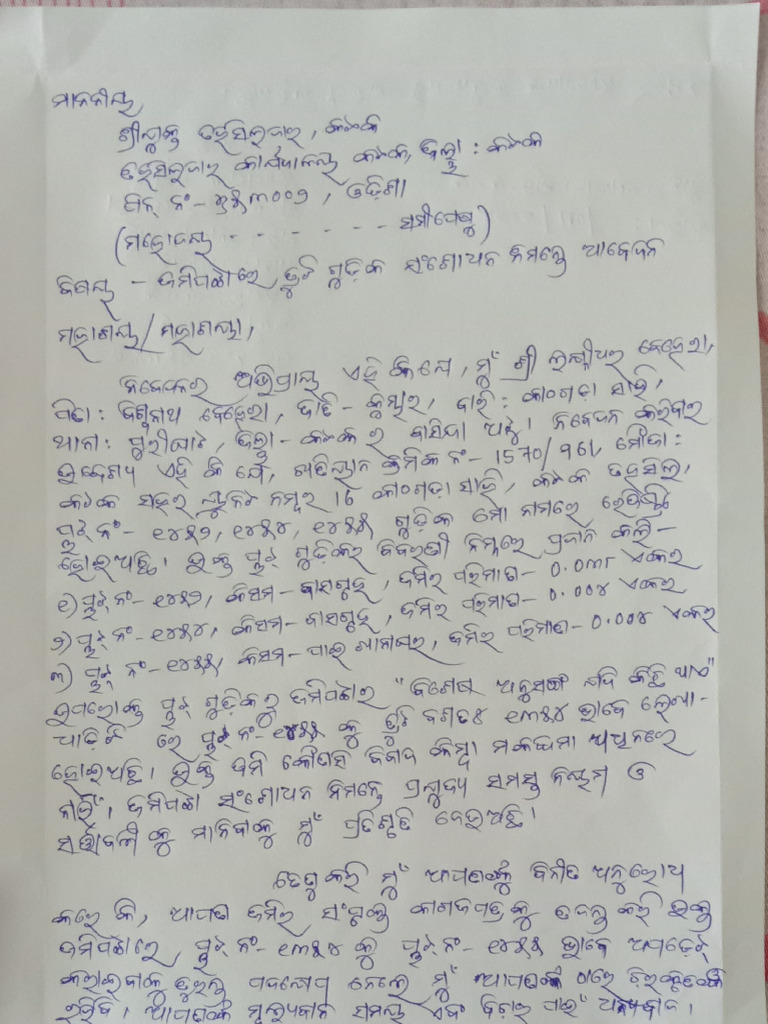 ମାନନୀୟ,
ଶ୍ରୀଯୁକ୍ତ ତହସିଲଦାର, କଟକ
ତହସିଲଦାର କାର୍ଯ୍ୟାଳୟ କଟକ, ଜିଲ୍ଲା : କଟକ
ପିନ୍ ନଂ - ୭୫୩୦୦୨, ଓଡ଼ିଶା
(ମହୋଦୟ - - - - - - - ସମୀପେଷୁ)
ବିଷୟ - ଜମିପଟ୍ଟାରେ ତ୍ରୁଟି ଗୁଡ଼ିକ ସଂଶୋଧନ ନିମନ୍ତେ ଆବେଦନ
ମହାଶୟ/ମହାଶୟା,
ନିବେଦନର ଅଭିପ୍ରାୟ ଏହି କି ଯେ, ମୁଁ ଶ୍ରୀ ଲକ୍ଷ୍ମୀଧର ବେହେରା,
ପିତା : ବିଶ୍ୱନାଥ ବେହେରା, ଜାତି - କୁମ୍ଭାର, ବାଡ଼ି : କାଠଗଡ଼ା ସାହି,
ଥାନା : ପୁରୀଘାଟ, ଜିଲ୍ଲା - କଟକ ର ବାସିନ୍ଦା ଅଟେ। ନିବେଦନ କରିବାର
ଉଦ୍ଦେଶ୍ୟ ଏହି କି ଯେ, ଖତିୟାନ କ୍ରମିକ ନଂ - 1570/961, ମୌଜା :
କଟକ ସହର ୟୁନିଟ ନମ୍ବର 16 କାଠଗଡ଼ା ସାହି, କଟକ ତହସିଲ,
ପ୍ଲଟ୍ ନଂ - ୧୪୫୨, ୧୪୫୪, ୧୪୫୫ ଗୁଡ଼ିକ ମୋ ନାମରେ ରେଜିଷ୍ଟ୍ରି
ହୋଇଅଛି। ଉକ୍ତ ପ୍ଲଟ୍ ଗୁଡ଼ିକର ବିବରଣୀ ନିମ୍ନରେ ପ୍ରଦାନ କଲି -
୧) ପ୍ଲଟ୍ ନଂ - ୧୪୫୨, କିସମ - ବାସଗୃହ, ଜମିର ପରିମାଣ - 0.୦୩୮ ଏକର
୨) ପ୍ଲଟ୍ ନଂ - ୧୪୫୪, କିସମ - ବାସଗୃହ, ଜମିର ପରିମାଣ - 0.୦୦୪ ଏକର
୩) ପ୍ଲଟ୍ ନଂ - ୧୪୫୫, କିସମ - ପାଇଖାନାଘର, ଜମିର ପରିମାଣ - 0.୦୦୪ ଏକର
ଉପରୋକ୍ତ ପ୍ଲଟ୍ ଗୁଡ଼ିକରୁ ଜମିପଟ୍ଟାର "ବିଶେଷ ଅନୁସଙ୍ଗ ଯଦି କିଛି ଥାଏ"
ରେ ପ୍ଲଟ୍ ନଂ - ୧୪୫୫ କୁ ତ୍ରୁଟି ବଶତଃ ୧୩୫୪ ଭାବେ ଲେଖା-
ହୋଇଅଛି। ଉକ୍ତ ଜମି କୌଣସି ବିବାଦ କିମ୍ବା ମକଦ୍ଦମା ଅଧିନରେ
ନାହିଁ। ଜମିପଟ୍ଟା ସଂଶୋଧନ ନିମନ୍ତେ ପ୍ରଯୁଜ୍ୟ ସମସ୍ତ ନିୟମ ଓ
ସର୍ତ୍ତାବଳୀ କୁ ମାନିବାକୁ ମୁଁ ପ୍ରତିଶୃତି ଦେଉଅଛି।
ତେଣୁ କରି ମୁଁ ଆପଣଙ୍କୁ ବିନୀତ ଅନୁରୋଧ
କରେ କି, ଆପଣ ଜମିର ସଂପୃକ୍ତ କାଗଜପତ୍ରକୁ ତଦନ୍ତ କରି ଉକ୍ତ
ଜମିପଟ୍ଟାରେ, ପ୍ଲଟ୍ ନଂ - ୧୩୫୪ କୁ ପ୍ଲଟ୍ ନଂ - ୧୪୫୫ ଭାବେ ଅପଡ଼େଟ୍
କରାଇବାକୁ ତୁରନ୍ତ ପଦକ୍ଷେପ ନେଲେ ମୁଁ ଆପଣଙ୍କ ଠାରେ ଚିରକୃତଜ୍ଞ
ରହିବି। ଆପଣଙ୍କ ମୂଲ୍ୟବାନ ସମୟ ଏବଂ ବିଚାର ପାଇଁ ଧନ୍ୟବାଦ।